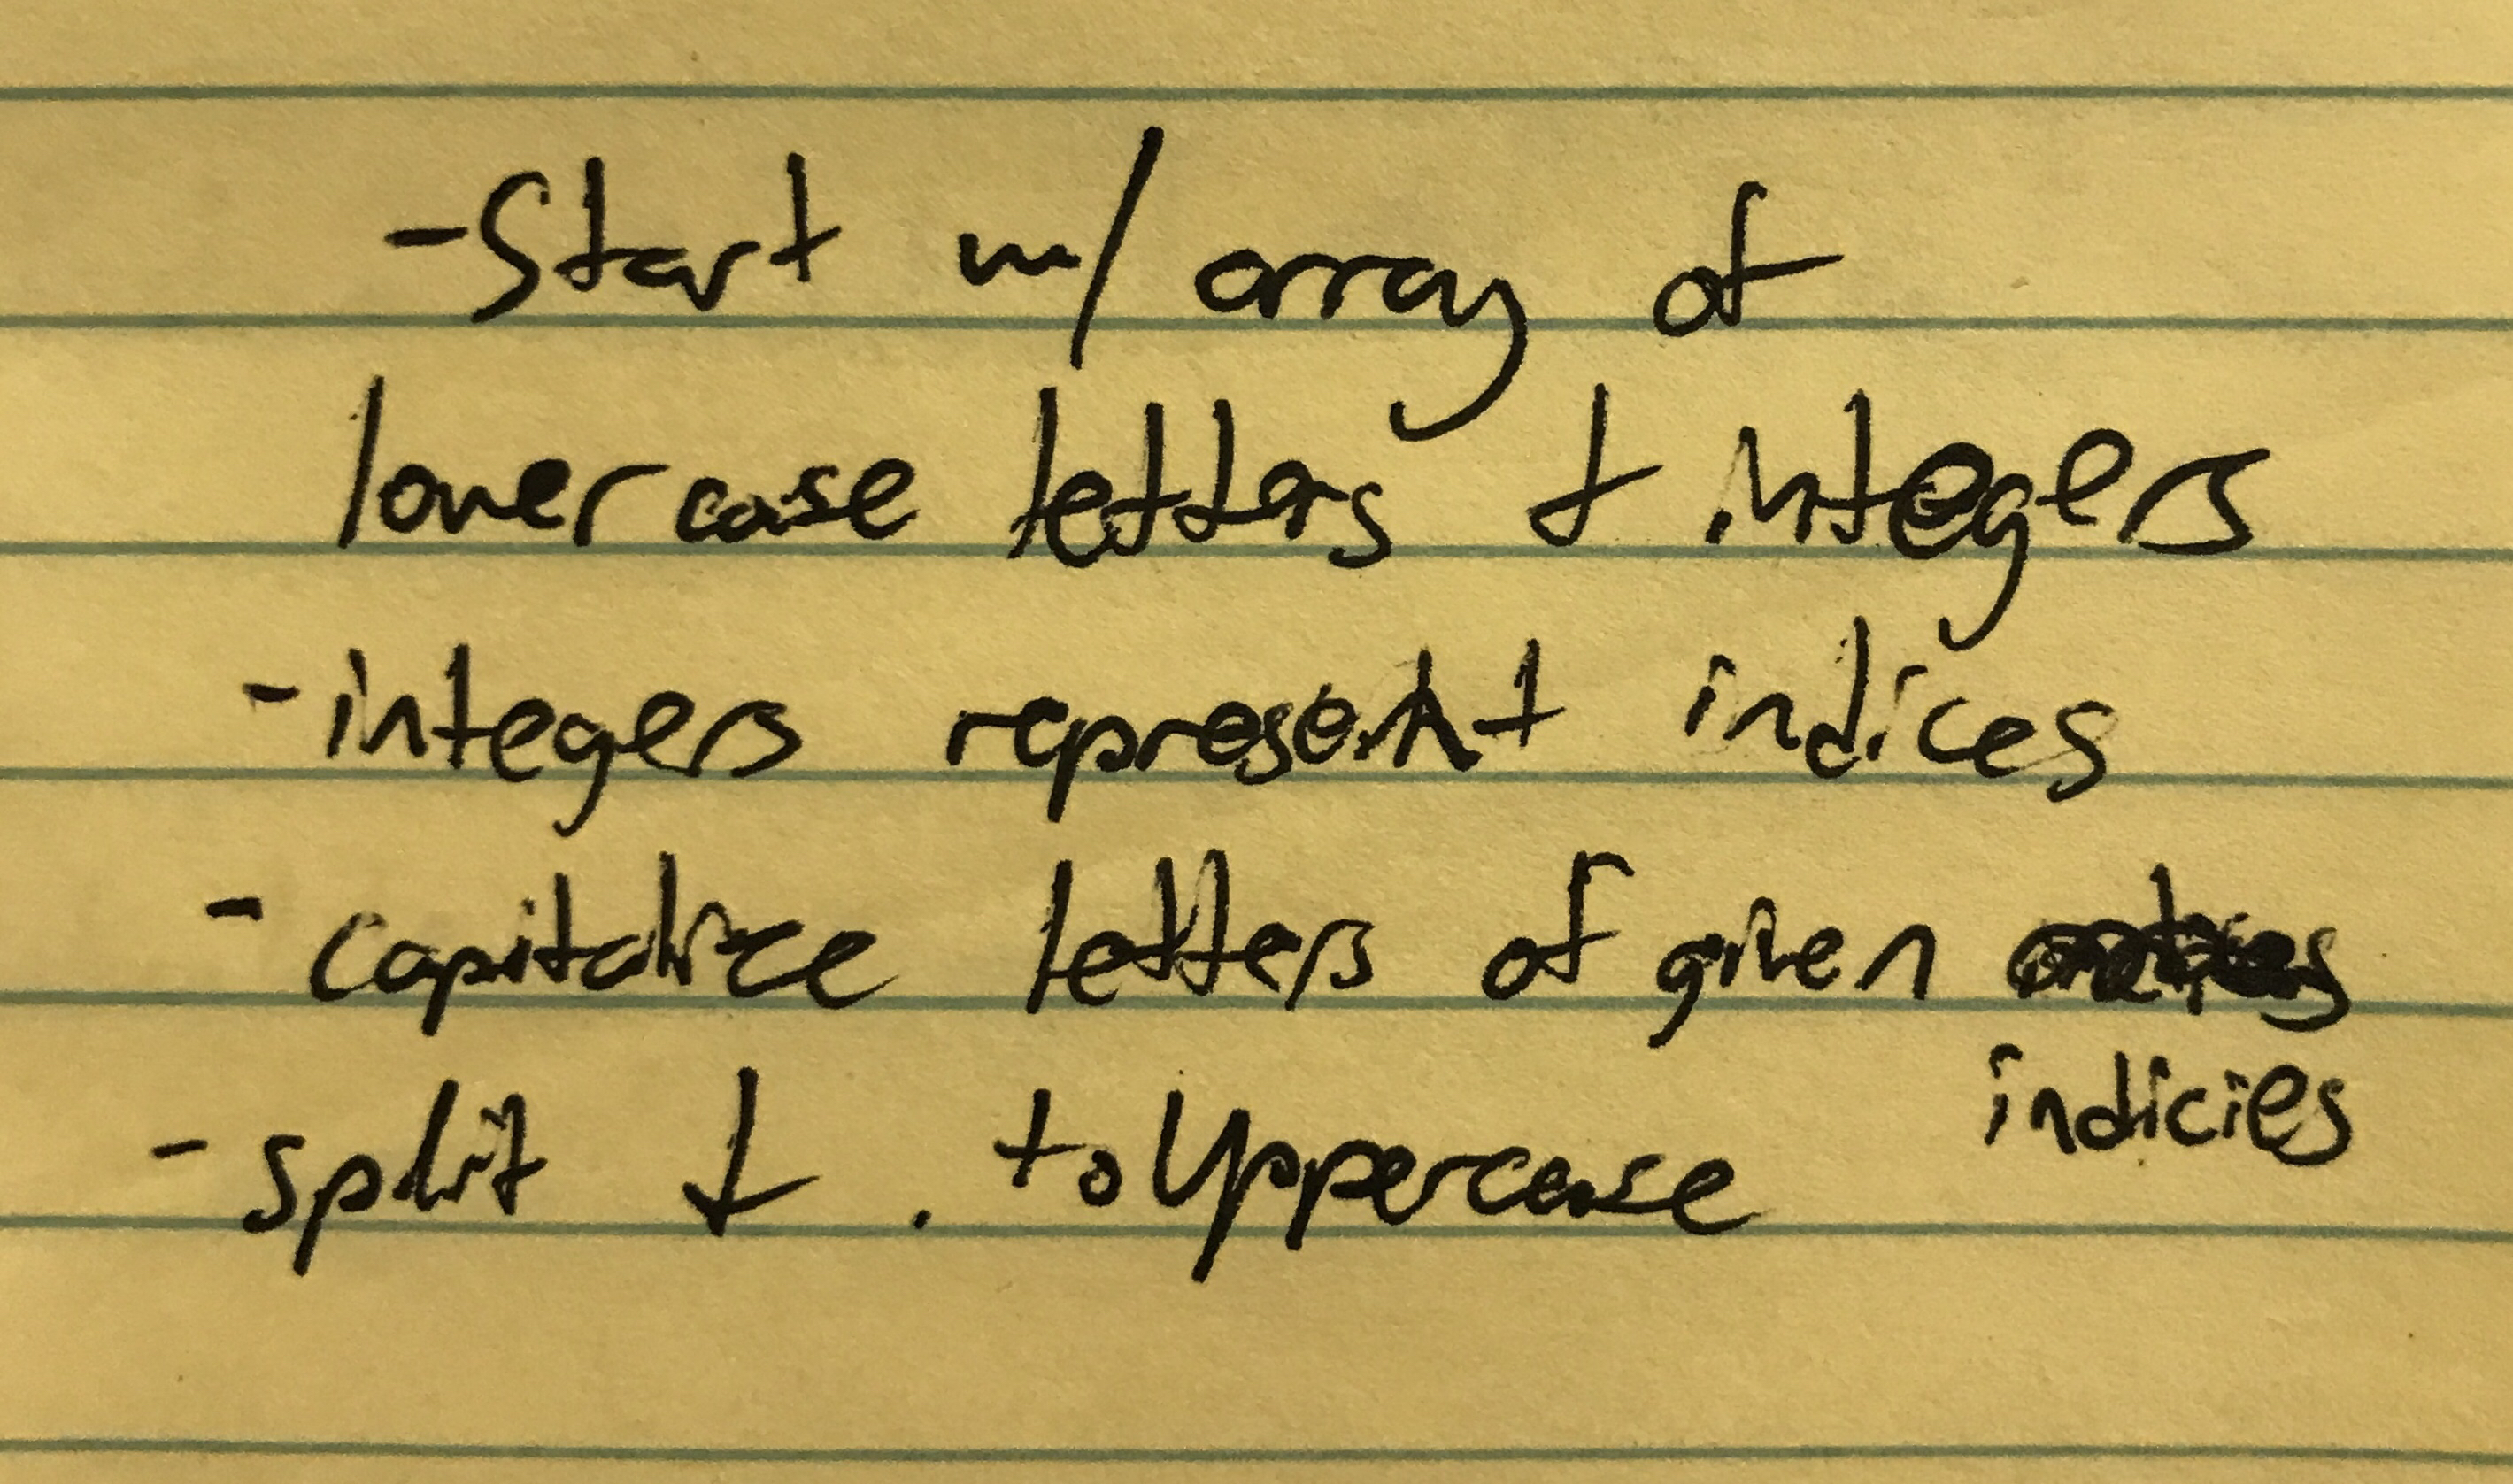 -Start w/ array of
lowercase letters + integers
-integers represent indices
-capitalize letters of given
indicies
-split + .toUppercase